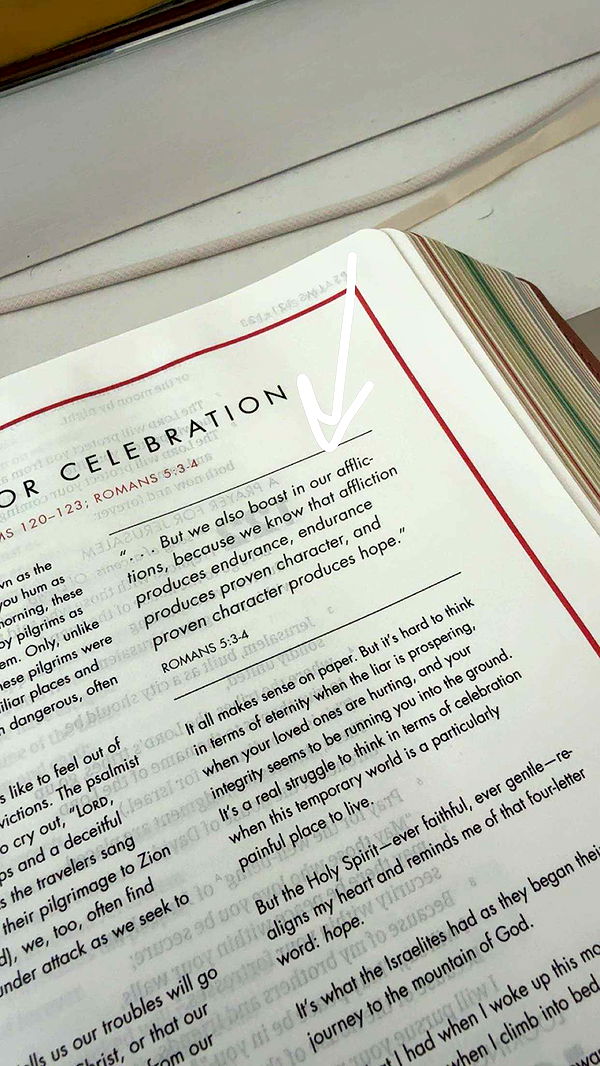 OR CELEBRATION
MS 120–123; ROMANS 5:3-4
wn as the
you hum as
morning, these
by pilgrims as
em. Only, unlike
hese pilgrims were
iliar places and
n dangerous, often
s like to feel out of
victions. The psalmist
o cry out, “LORD,
ps and a deceitful
s the travelers sang
their pilgrimage to Zion
d], we, too, often find
under attack as we seek to
ells us our troubles will go
Christ, or that our
from our
“. . . But we also boast in our afflic-
tions, because we know that affliction
produces endurance, endurance
produces proven character, and
proven character produces hope.”
ROMANS 5:3-4
It all makes sense on paper. But it’s hard to think
in terms of eternity when the liar is prospering,
when your loved ones are hurting, and your
integrity seems to be running you into the ground.
It’s a real struggle to think in terms of celebration
when this temporary world is a particularly
painful place to live.
But the Holy Spirit—ever faithful, ever gentle—re-
aligns my heart and reminds me of that four-letter
word: hope.
It’s what the Israelites had as they began their
journey to the mountain of God.
t I had when I woke up this mo
when I climb into bed